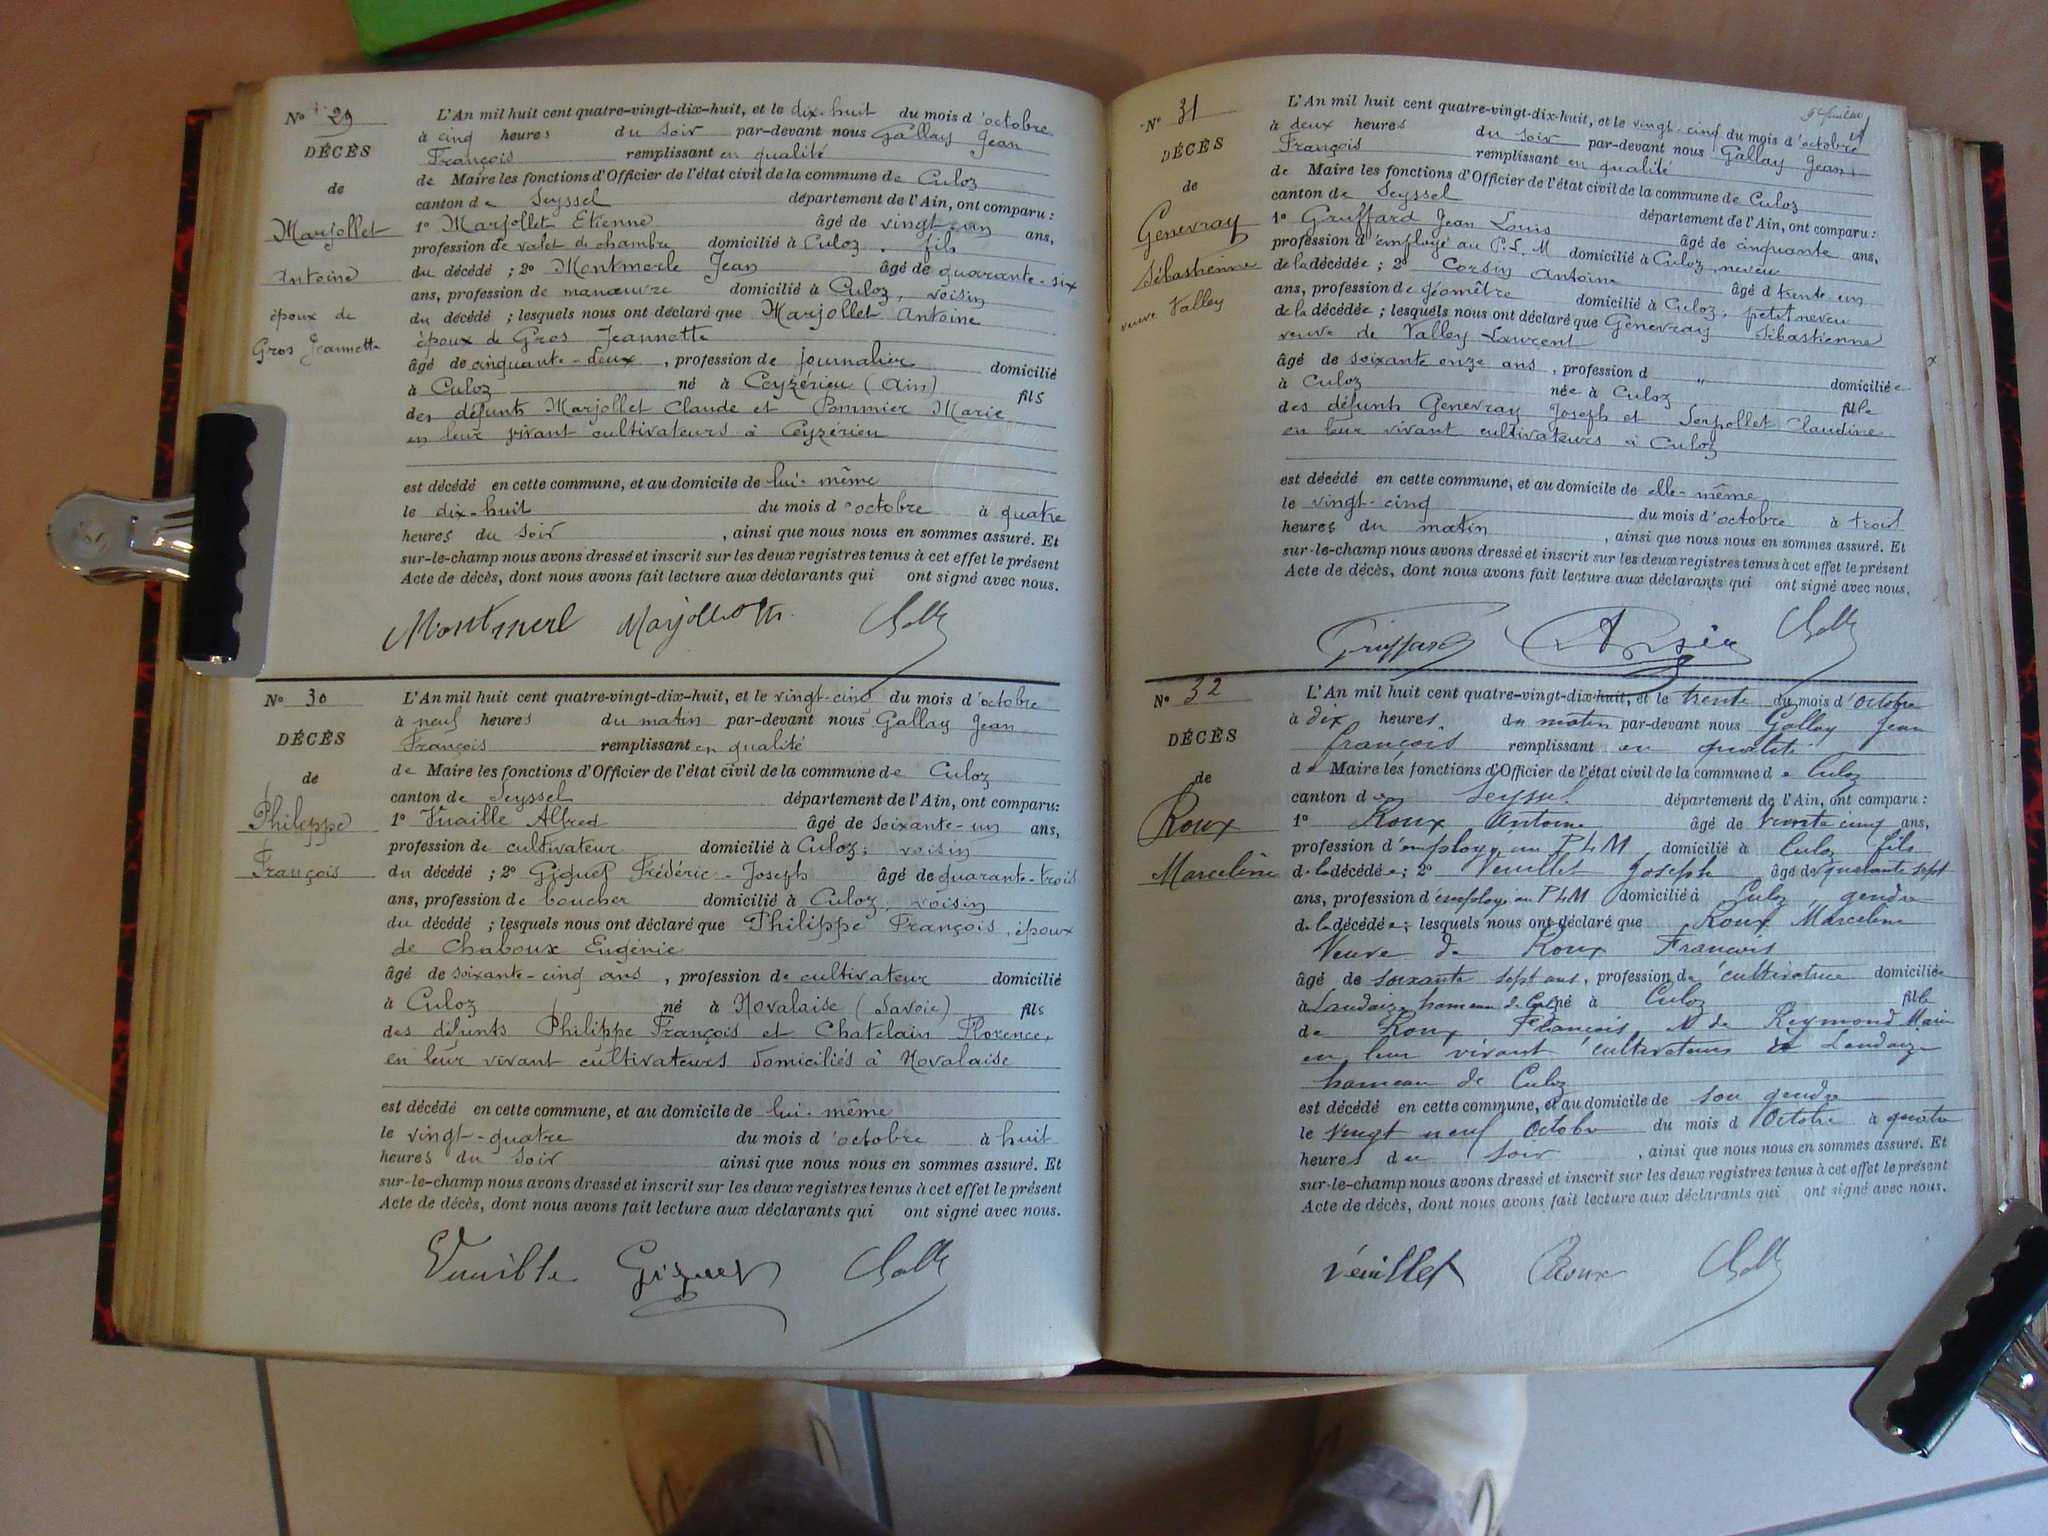 No 29
DÉCÈS
de
Marjollet
Antoine
époux de
Gros Jeannette
L'An mil huit cent quatre-vingt-dix-huit, et le dix-huit du mois d'octobre
à cinq heures du soir par-devant nous Gallay Jean
François remplissant en qualité
de Maire les fonctions d'Officier de l'état civil de la commune de Culoz
canton de Seyssel département de l'Ain, ont comparu :
1º Marjollet Etienne âgé de vingt-un ans,
profession de valet de chambre domicilié à Culoz, fils
du décédé ; 2º Montmerle Jean âgé de quarante-six
ans, profession de manœuvre domicilié à Culoz, voisin
du décédé ; lesquels nous ont déclaré que Marjollet Antoine
époux de Gros Jeannette
âgé de cinquante-deux, profession de journalier domicilié
à Culoz né à Ceyzérieu (Ain) fils
des défunts Marjollet Claude et Pommier Marie
en leur vivant cultivateurs à Ceyzérieu
est décédé en cette commune, et au domicile de lui-même
le dix-huit du mois d'octobre à quatre
heures du soir, ainsi que nous nous en sommes assuré. Et
sur-le-champ nous avons dressé et inscrit sur les deux registres tenus à cet effet le présent
Acte de décès, dont nous avons fait lecture aux déclarants qui ont signé avec nous.
Montmerl
No 30
DÉCÈS
de
Philippe
François
L'An mil huit cent quatre-vingt-dix-huit, et le vingt-cinq du mois d'octobre
à neuf heures du matin par-devant nous Gallay Jean
François remplissant en qualité
de Maire les fonctions d'Officier de l'état civil de la commune de Culoz
canton de Seyssel département de l'Ain, ont comparu :
1º Vuaille Alfred âgé de soixante-un ans,
profession de cultivateur domicilié à Culoz; voisin
du décédé ; 2º Giguet Frédéric-Joseph âgé de quarante-trois
ans, profession de boucher domicilié à Culoz, voisin
du décédé ; lesquels nous ont déclaré que Philippe François, époux
de Chaboux Eugénie
âgé de soixante-cinq ans, profession de cultivateur domicilié
à Culoz né à Novalaise (Savoie) fils
des défunts Philippe François et Chatelain Florence,
en leur vivant cultivateurs domiciliés à Novalaise
est décédé en cette commune, et au domicile de lui-même
le vingt-quatre du mois d'octobre à huit
heures du soir ainsi que nous nous en sommes assuré. Et
sur-le-champ nous avons dressé et inscrit sur les deux registres tenus à cet effet le présent
Acte de décès, dont nous avons fait lecture aux déclarants qui ont signé avec nous.
Giguet
No 31
DÉCÈS
de
Genevray
Sébastienne
veuve Valley
L'An mil huit cent quatre-vingt-dix-huit, et le vingt-cinq du mois d'octobre
à deux heures du soir par-devant nous Gallay Jean
François remplissant en qualité
de Maire les fonctions d'Officier de l'état civil de la commune de Culoz
canton de Seyssel département de l'Ain, ont comparu :
1º Gruffard Jean Louis âgé de cinquante ans,
profession d'employé au P.L.M domicilié à Culoz, neveu
de la décédée ; 2º Corsin Antoine âgé d trente un
ans, profession de géomètre domicilié à Culoz, petit neveu
de la décédée ; lesquels nous ont déclaré que Genevray Sébastienne
veuve de Valley Laurent
âgé de soixante onze ans, profession d " domiciliée
à Culoz née à Culoz fille
des défunts Genevray Joseph et Serpollet Claudine
en leur vivant cultivateurs à Culoz
est décédé en cette commune, et au domicile de elle-même
le vingt-cinq du mois d'octobre à trois
heures du matin, ainsi que nous nous en sommes assuré. Et
sur-le-champ nous avons dressé et inscrit sur les deux registres tenus à cet effet le présent
Acte de décès, dont nous avons fait lecture aux déclarants qui ont signé avec nous.
Gruffard
No 32
DÉCÈS
de
Roux
Marceline
L'An mil huit cent quatre-vingt-dix-huit, et le trente du mois d'Octobre
à dix heures du matin par-devant nous Gallay Jean
François remplissant en qualité
de Maire les fonctions d'Officier de l'état civil de la commune de Culoz
canton de Seyssel département de l'Ain, ont comparu :
1º Roux Antoine âgé de trente cinq ans,
profession d'employé au PLM domicilié à Culoz fils
de la décédée ; 2º Veuillet Joseph âgé de quarante sept
ans, profession d'employé au PLM domicilié à Culoz, gendre
de la décédée ; lesquels nous ont déclaré que Roux Marceline
Veuve de Roux François
âgé de soixante sept ans, profession de cultivatrice domiciliée
à Landaize hameau de Culoz né à Culoz fille
de Roux François et de Reymond Marie
en leur vivant cultivateurs à Landaize
hameau de Culoz
est décédé en cette commune, et au domicile de son gendre
le vingt neuf Octobre du mois d Octobre à quatre
heures du soir, ainsi que nous nous en sommes assuré. Et
sur-le-champ nous avons dressé et inscrit sur les deux registres tenus à cet effet le présent
Acte de décès, dont nous avons fait lecture aux déclarants qui ont signé avec nous.
Véuillet Roux